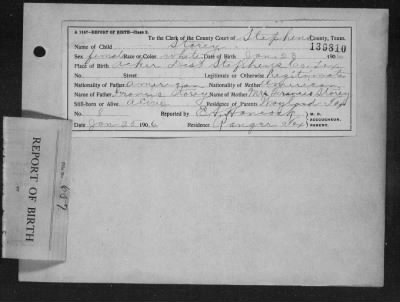 A 1167—REPORT OF BIRTH—Class 2.
To the Clerk of the County Court of Stephens County, Texas
135310
Name of Child Storey
Sex female Race or Color white Date of Birth Jan 23 1906
Place of Birth Dist Stephens Co. Tex
No. Street Legitimate or Otherwise Legitimate
Nationality of Father American Nationality of Mother American
Name of Father Francis Storey Name of Mother Mrs Francis Storey
Still-born or Alive Alive Residence of Parents Wayland Tex
No. 8 Reported by Hancock M. D. ACCOUCHEUR. PARENT.
Date Jan 25 1906 Residence Ranger Tex
REPORT OF BIRTH
File No. 687